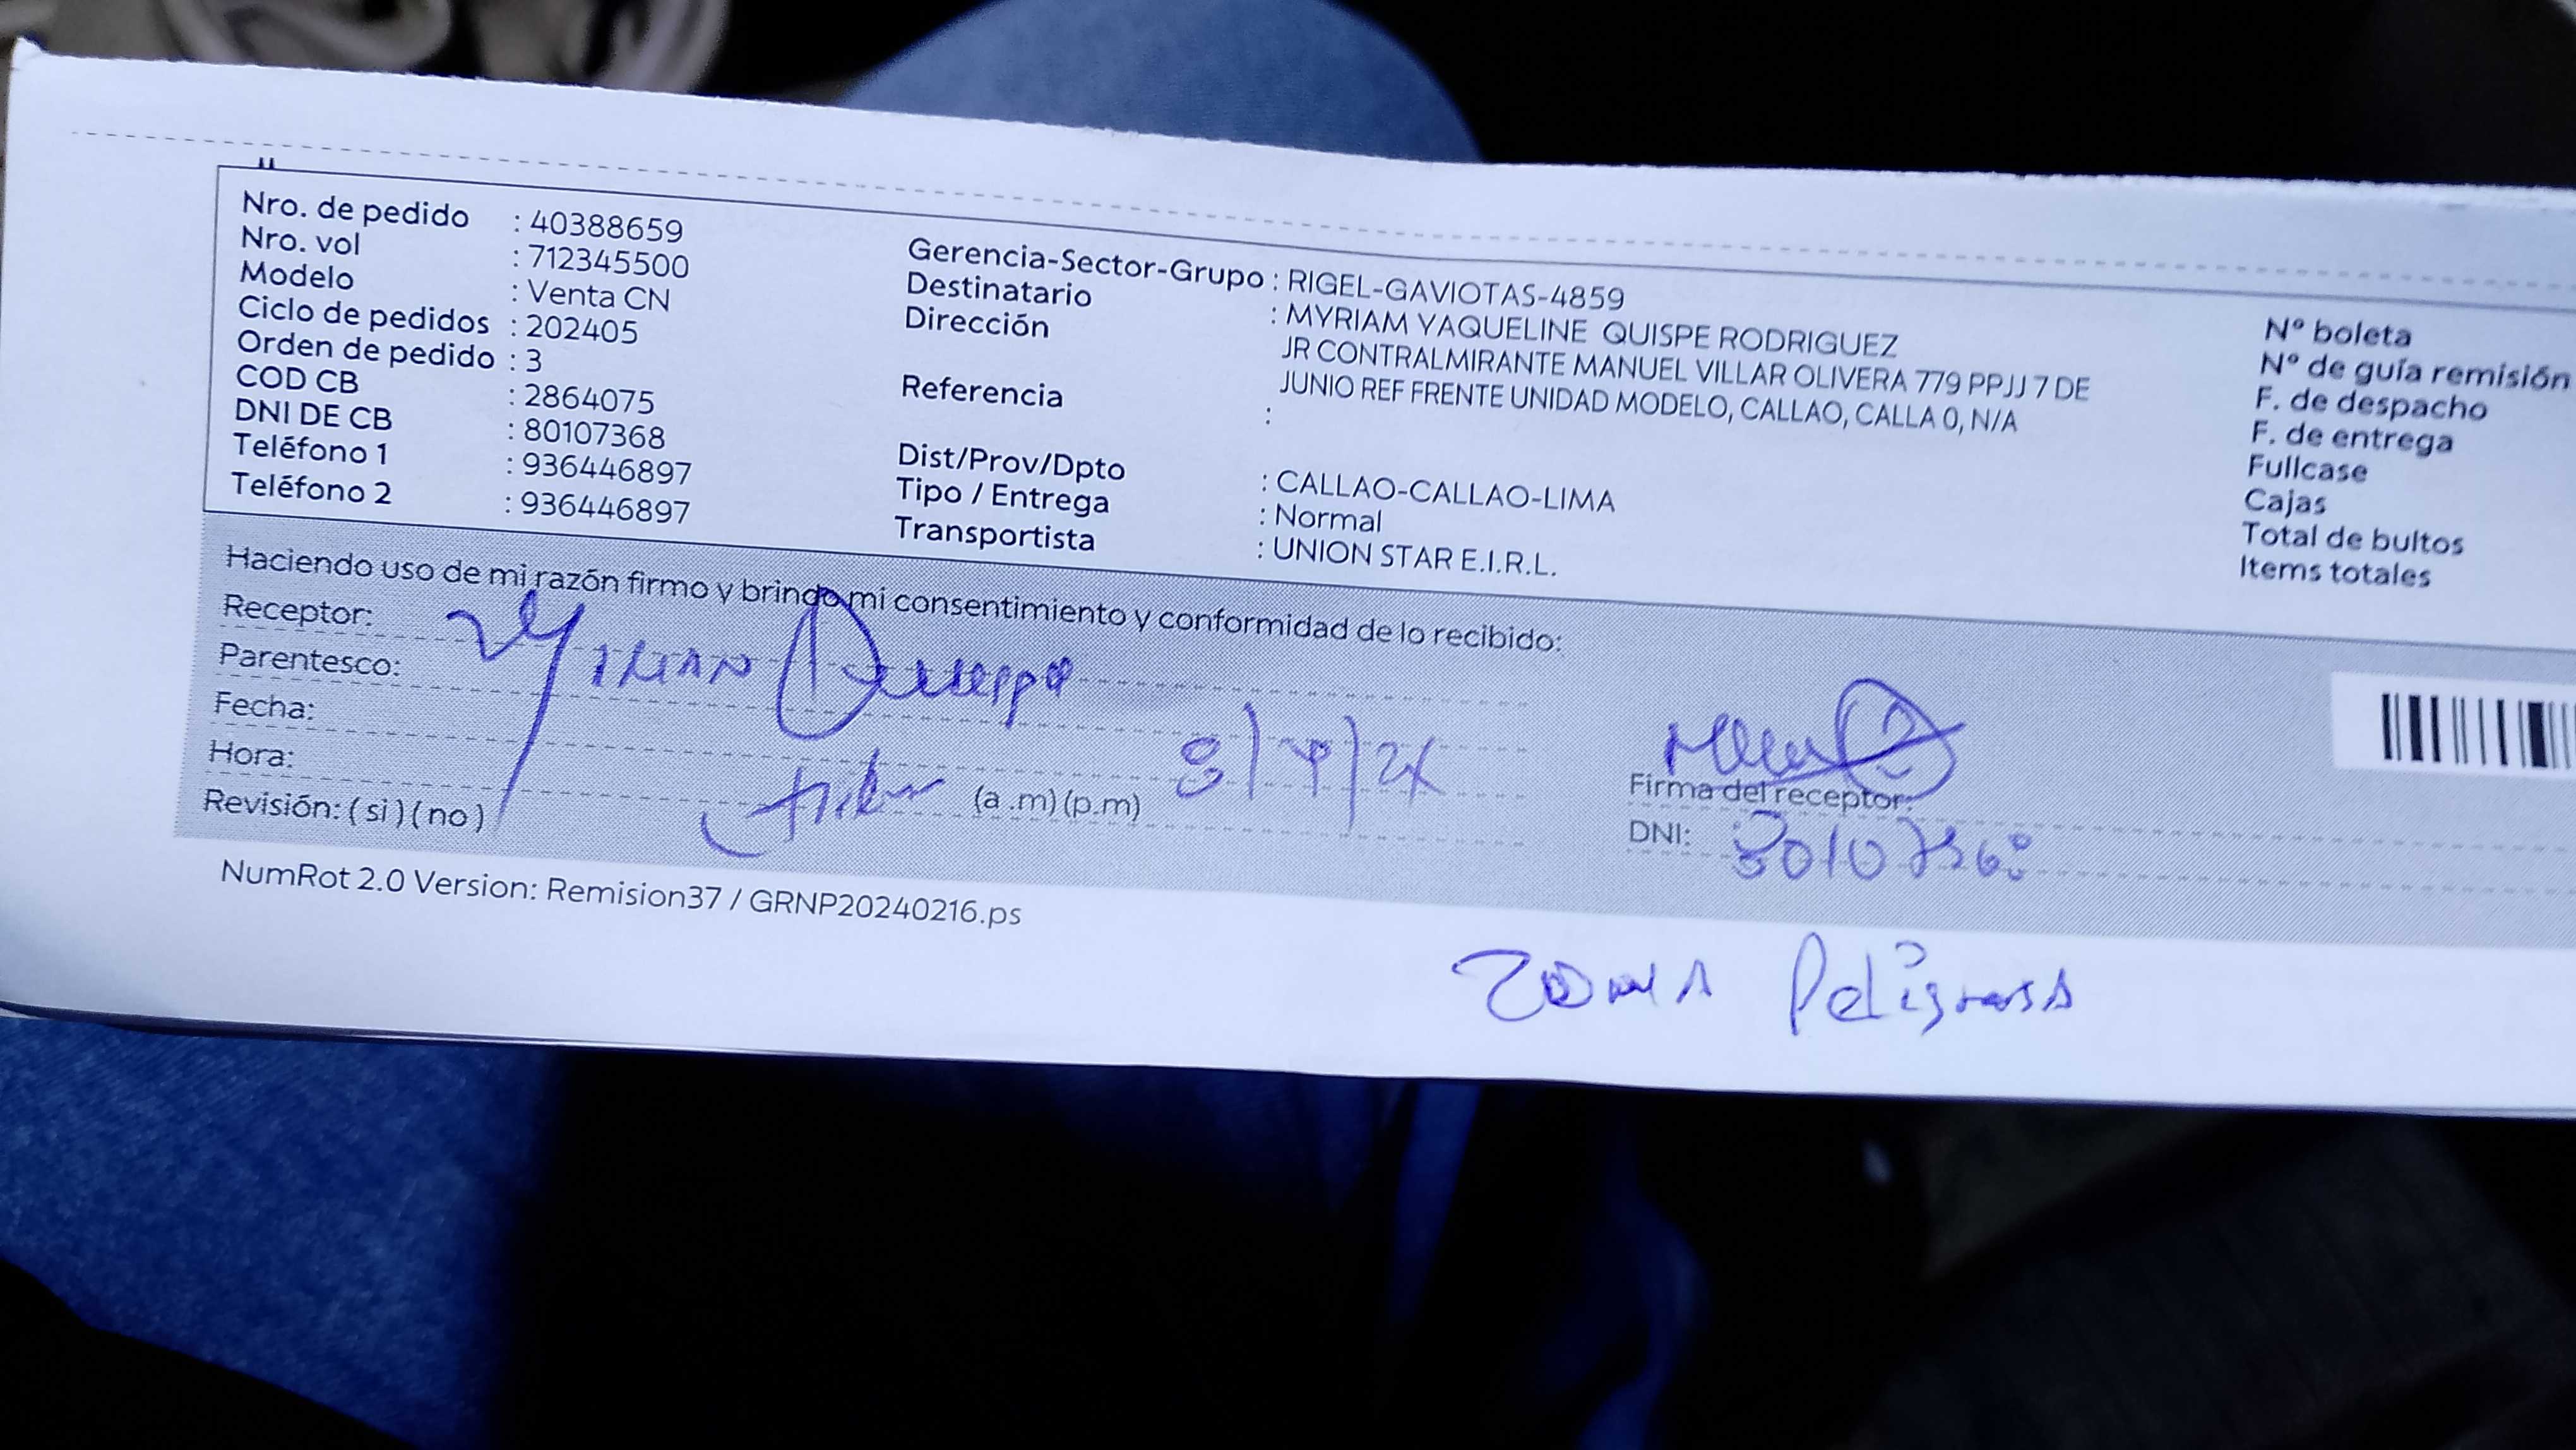 Nro. de pedido : 40388659
Nro. vol : 712345500
Modelo : Venta CN
Ciclo de pedidos : 202405
Orden de pedido : 3
COD CB : 2864075
DNI DE CB : 80107368
Teléfono 1 : 936446897
Teléfono 2 : 936446897
Gerencia-Sector-Grupo : RIGEL-GAVIOTAS-4859
Destinatario : MYRIAM YAQUELINE QUISPE RODRIGUEZ
Dirección JR CONTRALMIRANTE MANUEL VILLAR OLIVERA 779 PPJJ 7 DE
JUNIO REF FRENTE UNIDAD MODELO, CALLAO, CALLA 0, N/A
Referencia :
Dist/Prov/Dpto : CALLAO-CALLAO-LIMA
Tipo / Entrega : Normal
Transportista : UNION STAR E.I.R.L.
N° boleta
N° de guía remisión
F. de despacho
F. de entrega
Fullcase
Cajas
Total de bultos
Items totales
Haciendo uso de mi razón firmo y brindo mi consentimiento y conformidad de lo recibido:
Receptor:
Parentesco:
Fecha:
Hora: (a.m) (p.m)
Revisión: ( si ) ( no )
Firma del receptor:
DNI: 80107368
NumRot 2.0 Version: Remision37 / GRNP20240216.ps
ZONA Peligrosa